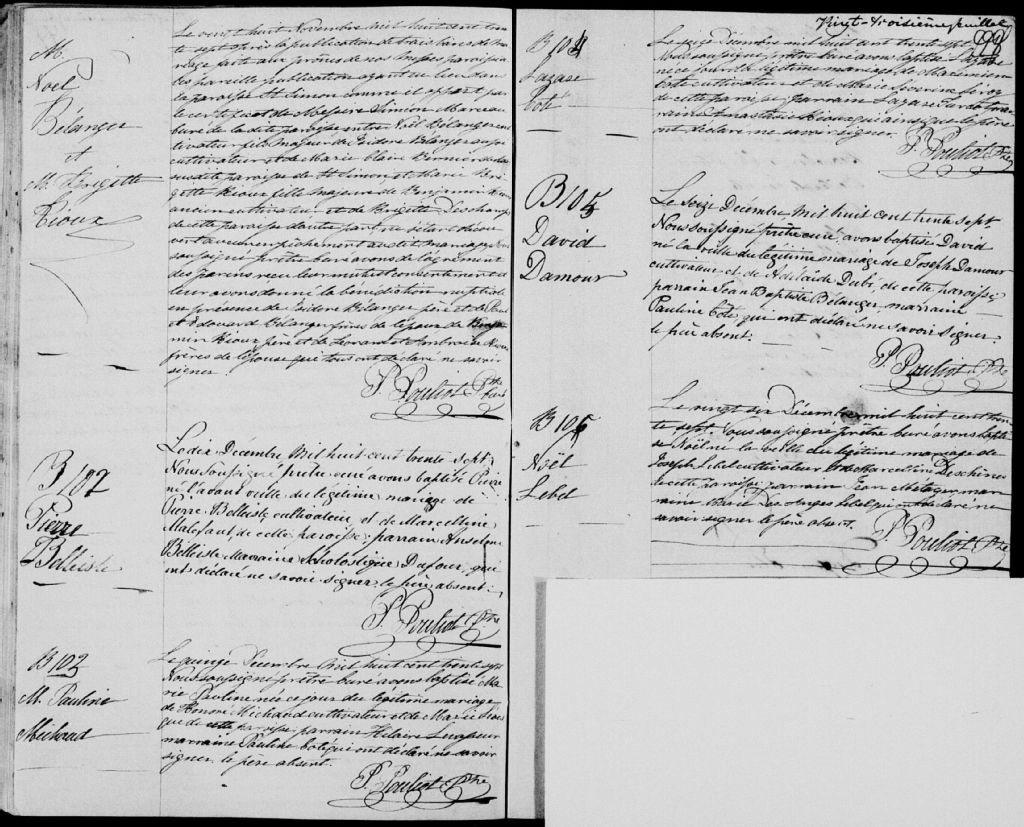 M.
Noël
Bélanger
et
M. Brigitte
Rioux
Le vingt huit Novembre mil huit cent tren
te sept après la publication de trois bans de ma
riage faite aux prônes de nos messes paroissia
les pareille publication ayant eu lieu dans
la paroisse St Simon comme il appert par
le certificat de Messire Simon Marceau
Curé de la dite paroisse entre Noël Bélanger cul
tivateur fils majeur d'Isidore Bélanger aussi
cultivateur et de Marie Claire Bernier de la
susdite paroisse de St Simon et Marie Bri
gitte Rioux fille majeure de Benjamin Rioux
ancien cultivateur et de Brigitte Deschamps
de cette paroisse d'autre part ne s'étant décou
vert aucun empêchement au dit mariage Nous
soussigné prêtre Curé avons de l'agrément
des parens reçu leur mutuel consentement et
leur avons donné la bénédiction nuptiale
en présence d'Isidore Bélanger père et de Paul
et Edouard Bélanger frères de l'époux de Benja
min Rioux père et de et Ambroise Rioux
frères de l'épouse qui tous ont déclaré ne savoir
signer
P. Pouliot Ptre
Curé
B 102
Pierre
Bellisle
Le dix Décembre Mil huit cent trente sept
Nous soussigné prêtre curé avons baptisé Pierre
né l'avant veille du légitime mariage de
Pierre Bellisle, cultivateur, et de Marcelline
Malefant, de cette paroisse; parrain Anselme
Bellisle Marraine Scholastique Dufour, qui
ont déclaré ne savoir signer, le père absent.
P. Pouliot Ptre
B 103
M. Pauline
Michaud
Le quinze Décembre Mil huit cent trente sept
Nous soussigné prêtre Curé avons baptisé Ma
rie Pauline née ce jour du légitime mariage
de Honoré Michaud cultivateur et de Marie
que de cette paroisse parrain Hilaire Levasseur
marraine Pauline Coté qui ont déclaré ne savoir
signer, le père absent.
P. Pouliot Ptre
Vingt-troisième feuillet
B 104
Lazare
Coté
Le seize Décembre mil huit cent trente sept
Nous soussigné prêtre Curé avons baptisé Lazare
né ce jour du légitime mariage de Maximien
Coté cultivateur et de Marie Séverine Leroy
de cette paroisse, parrain Lazare mar
raine Anastasie Rioux qui ainsi que le père
ont déclaré ne savoir signer.
P. Pouliot Ptre
B 105
David
Damour
Le Seize Décembre Mil huit cent trente sept
Nous soussigné prêtre curé, avons baptisé David
né la veille du légitime mariage de Joseph Damour
cultivateur et de Adélaïde Dubé, de cette paroisse,
parrain Jean Baptiste Bélanger, marraine
Pauline Coté, qui ont déclaré ne savoir signer,
le père absent.
P. Pouliot Ptre
B 106
Noël
Lebel
Le vingt six Décembre mil huit cent tren
te sept. Nous soussigné prêtre Curé avons bapti
sé Noël né la veille du légitime mariage de
Joseph Lebel cultivateur et de Marcelline Deschênes
de cette paroisse, parrain Jean Metayer mar
raine Marie Des Anges Lebel qui ont déclaré ne
savoir signer le père absent.
P. Pouliot Ptre